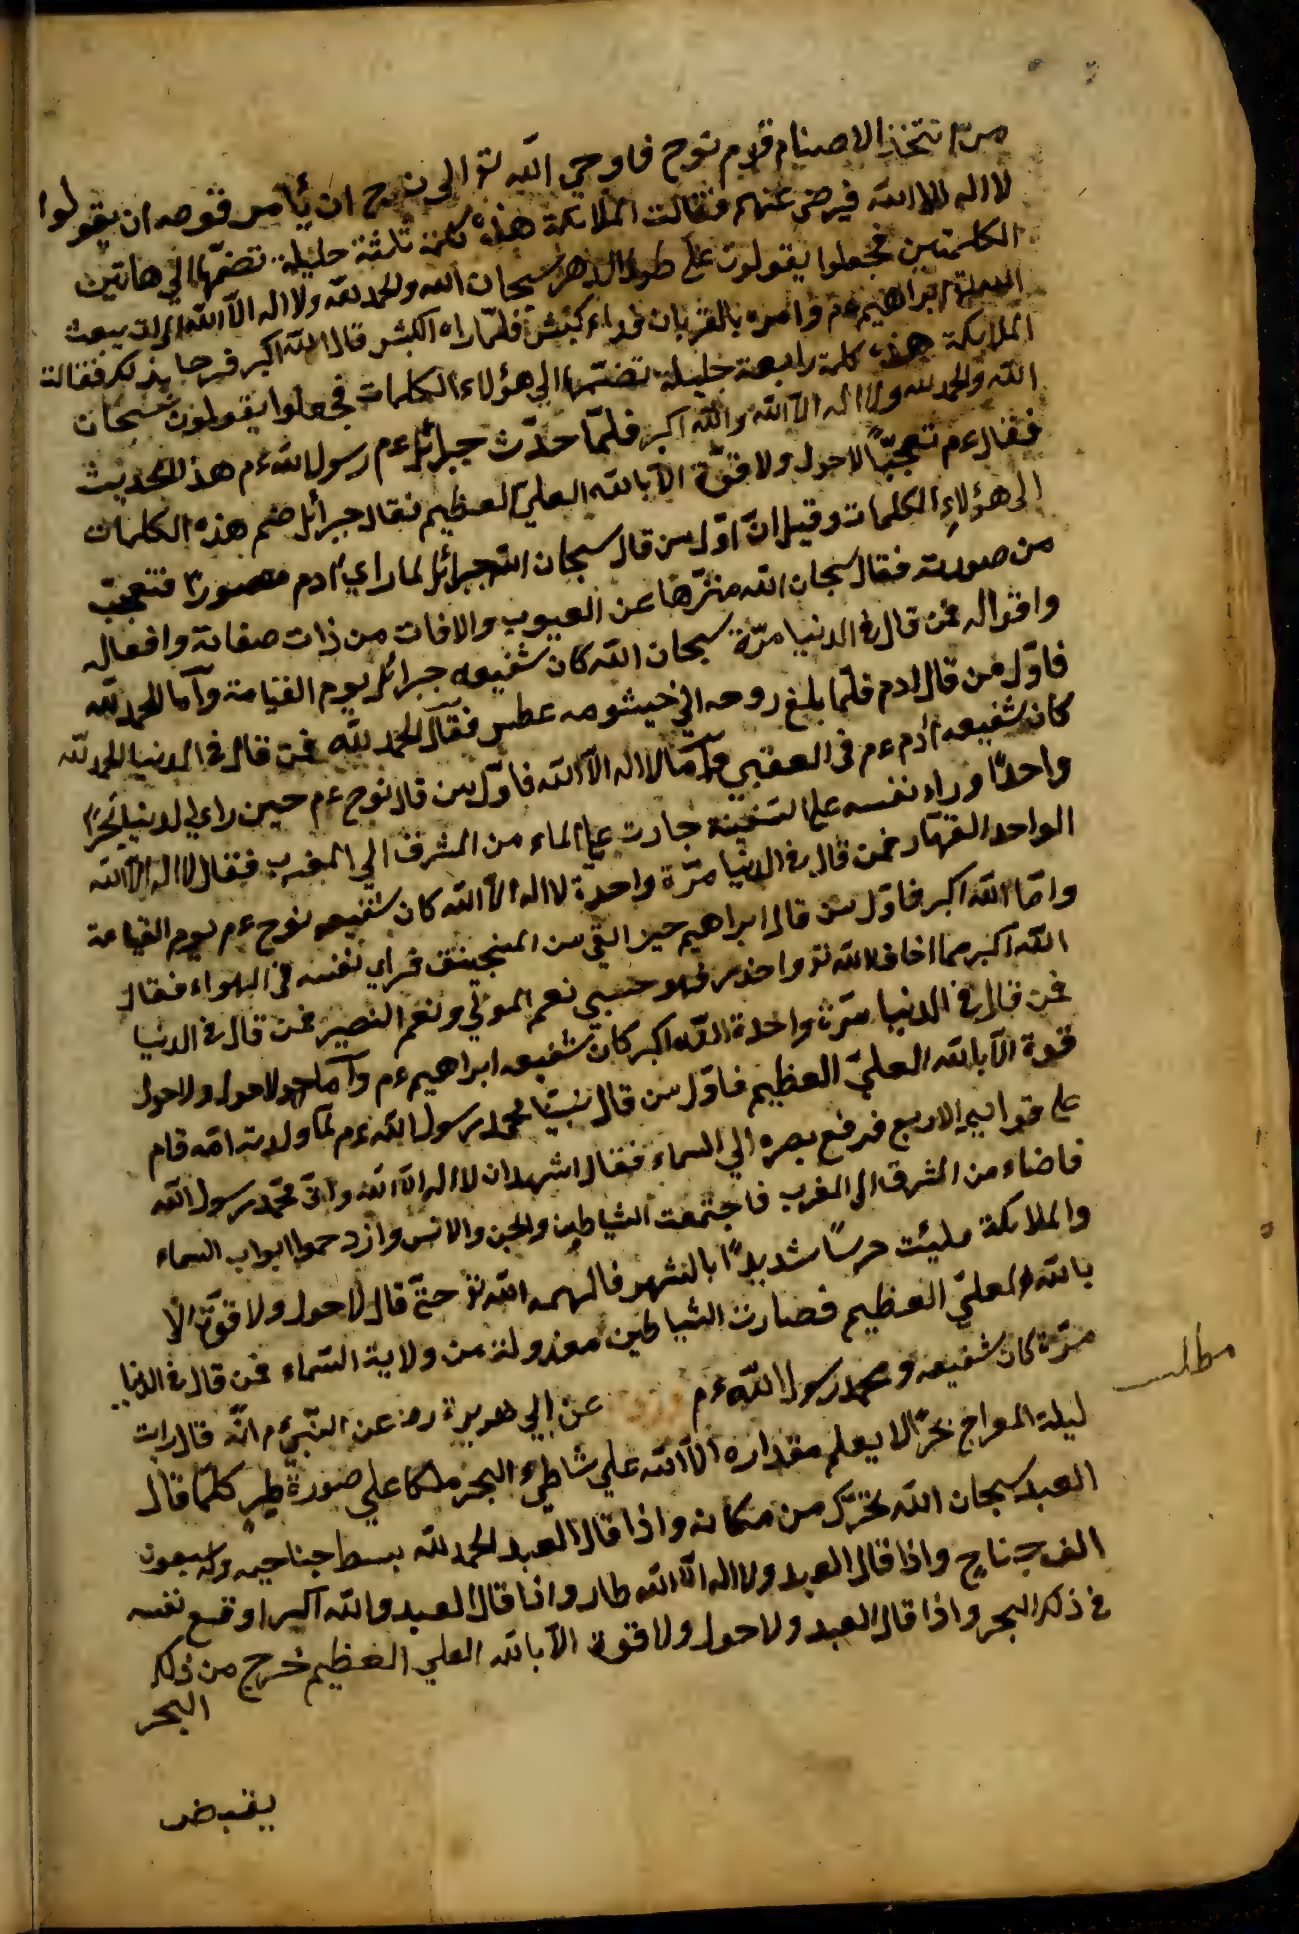 من اتخذ الاصنام قوم نوح فاوحي الله تع الى نوح ان يأمر قومه ان يقولوا
لا اله الا الله فيرضي عنهم فقالت الملائكة هذه كلمة ثلثة جليلة تضمها الي هاتين
الكلمتين فجعلوا يقولون علي طول الدهر سبحان الله والحمد لله ولا اله الا الله الي ان يبعث
الله ابراهيم عم وامره بالقربان فداء كبش فلما راه الكبش قال الله اكبر فرحا بذلك فقالت
الملائكة هذه كلمة رابعة جليلة تضمها الي هؤلاء الكلمات فجعلوا يقولون سبحان
الله والحمد لله ولا اله الا الله والله اكبر فلما حدث جبرائل عم رسول الله عم هذا الحديث
فقال عم تعجبا لا حول ولا قوة الا بالله العلي العظيم فقال جبرائل ضم هذه الكلمات
الى هؤلاء الكلمات وقيل ان اول من قال سبحان الله جبرائل لما راي ادم مصورا فتعجب
من صورته فقال سبحان الله منزها عن العيوب والافات من ذات صفاته وافعاله
واقواله فمن قال في الدنيا مرة سبحان الله كان شفيعه جبرائل يوم القيامة وأما الحمد لله
فاول من قال ادم فلما بلغ روحه الي خيشومه عطس فقال الحمد لله فمن قال في الدنيا الحمد لله
كان شفيعه ادم عم في العقبي وأما لا اله الا الله فاول من قال نوح عم حين راي الدنيا بحرا
واحدا وراء نفسه علي السفينة جارت علي الماء من المشرق الي المغرب فقال لا اله الا الله
الواحد القهار فمن قال في الدنيا مرة واحدة لا اله الا الله كان شفيعه نوح عم يوم القيامة
واما الله اكبر فاول من قال ابراهيم حين القي من المنجينق فراي نفسه في الهواء فقال
الله اكبر مما اخاف الله تع واحذر فهو حسبي نعم المولي ونعم النصير فمن قال في الدنيا
فمن قال في الدنيا مرة واحدة الله اكبر كان شفيعه ابراهيم عم وأما لا حول ولا
قوة الا بالله العلي العظيم فاول من قال نبينا محمد رسول الله عم لما ولدته امه قام
علي قوايمه الاربع فرفع بصره الي السماء فقال اشهد ان لا اله الا الله واني محمد رسول الله
فاضاء من المشرق الي المغرب فاجتمعت الشياطين والجن والانس وازدحموا ابواب السماء
والملائكة مليئت حرسا شديدا بالشهر فالهمه الله تع حتي قال لا حول ولا قوة الا
بالله العلي العظيم فصارت الشياطين معزولة من ولاية السماء فمن قال في الدنيا
مرة كان شفيعه محمد رسول الله عم عن ابي هريرة رض عن النبي عم انه قال رايت
مطلب
ليلة المعراج بحرا لا يعلم مقداره الا الله علي شاطئ البحر ملكا علي صورة طير كلما قال
العبد سبحان الله تحرك من مكانه واذا قال العبد الحمد لله بسط جناحيه وله سبعون
الف جناح واذا قال العبد ولا اله الا الله طار واذا قال العبد والله اكبر اوقع نفسه
في ذلك البحر واذا قال العبد ولا حول ولا قوة الا بالله العلي العظيم خرج من ذلك
البحر
يقبض